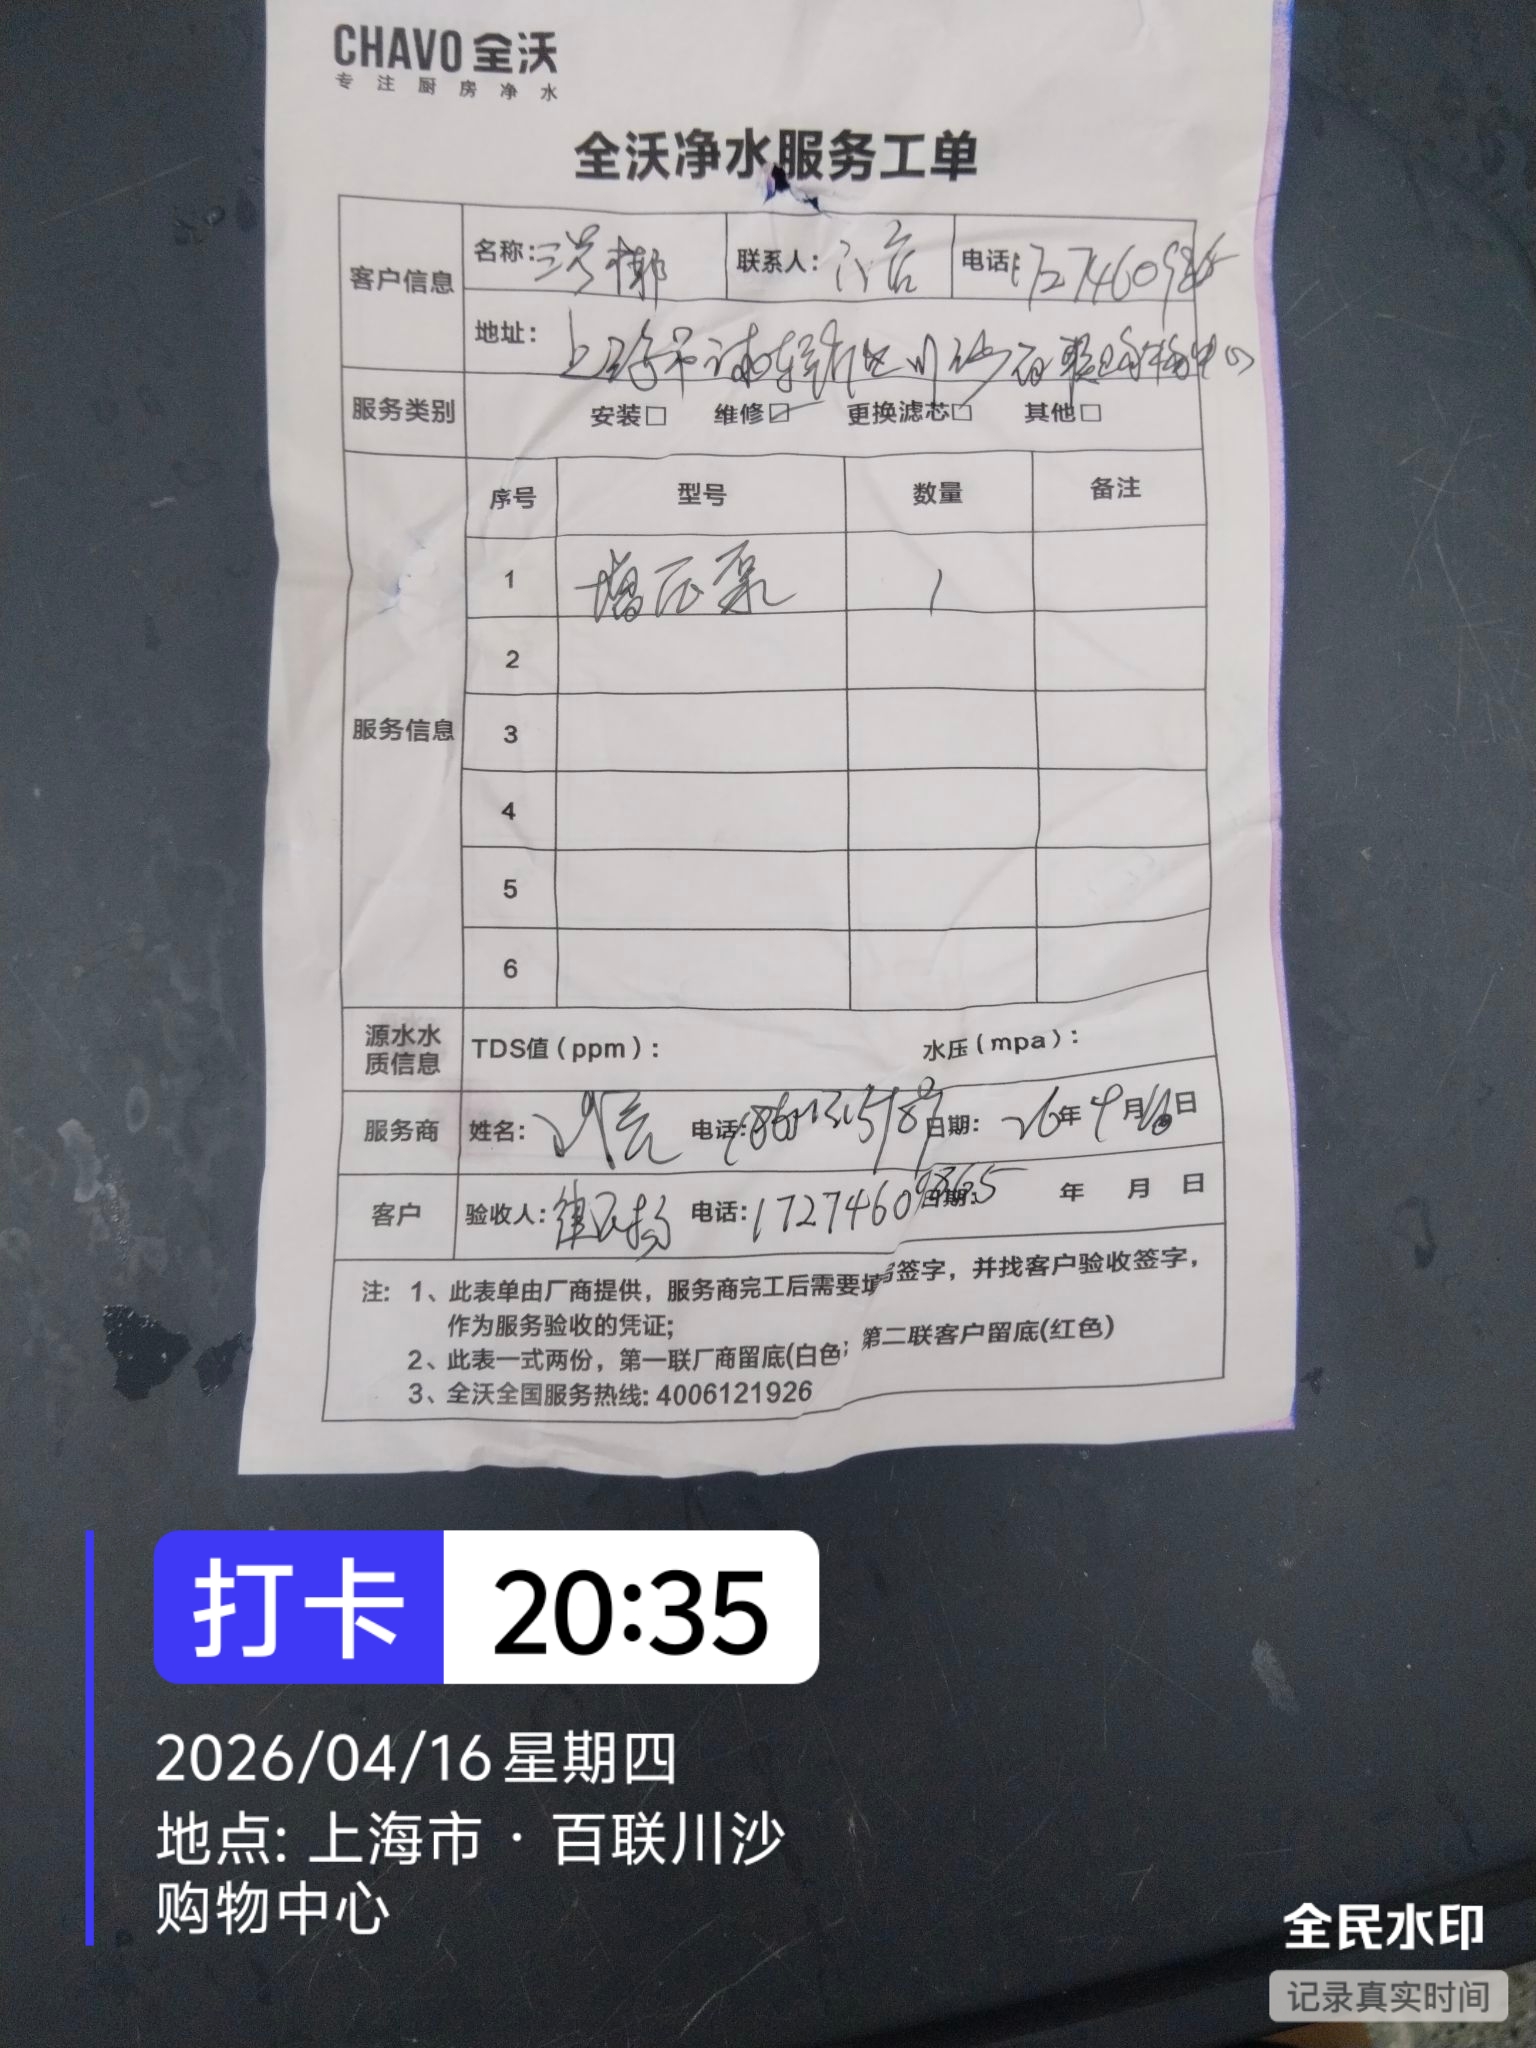 CHAVO 全沃
专注厨房净水
全沃净水服务工单
客户信息 名称: 联系人: 电话:
地址: 上海市浦东新区川沙百联购物中心
服务类别 安装□ 维修☑ 更换滤芯□ 其他□
服务信息 序号 型号 数量 备注
1 增压泵 1
2
3
4
5
6
源水水质信息 TDS值(ppm): 水压(mpa):
服务商 姓名: 电话: 日期: 26年4月16日
客户 验收人: 电话:17274609865 日期: 年 月 日
注: 1、此表单由厂商提供，服务商完工后需要填写签字，并找客户验收签字，
作为服务验收的凭证;
2、此表一式两份，第一联厂商留底(白色; 第二联客户留底(红色)
3、全沃全国服务热线: 4006121926
打卡 20:35
2026/04/16 星期四
地点: 上海市·百联川沙
购物中心
全民水印
记录真实时间